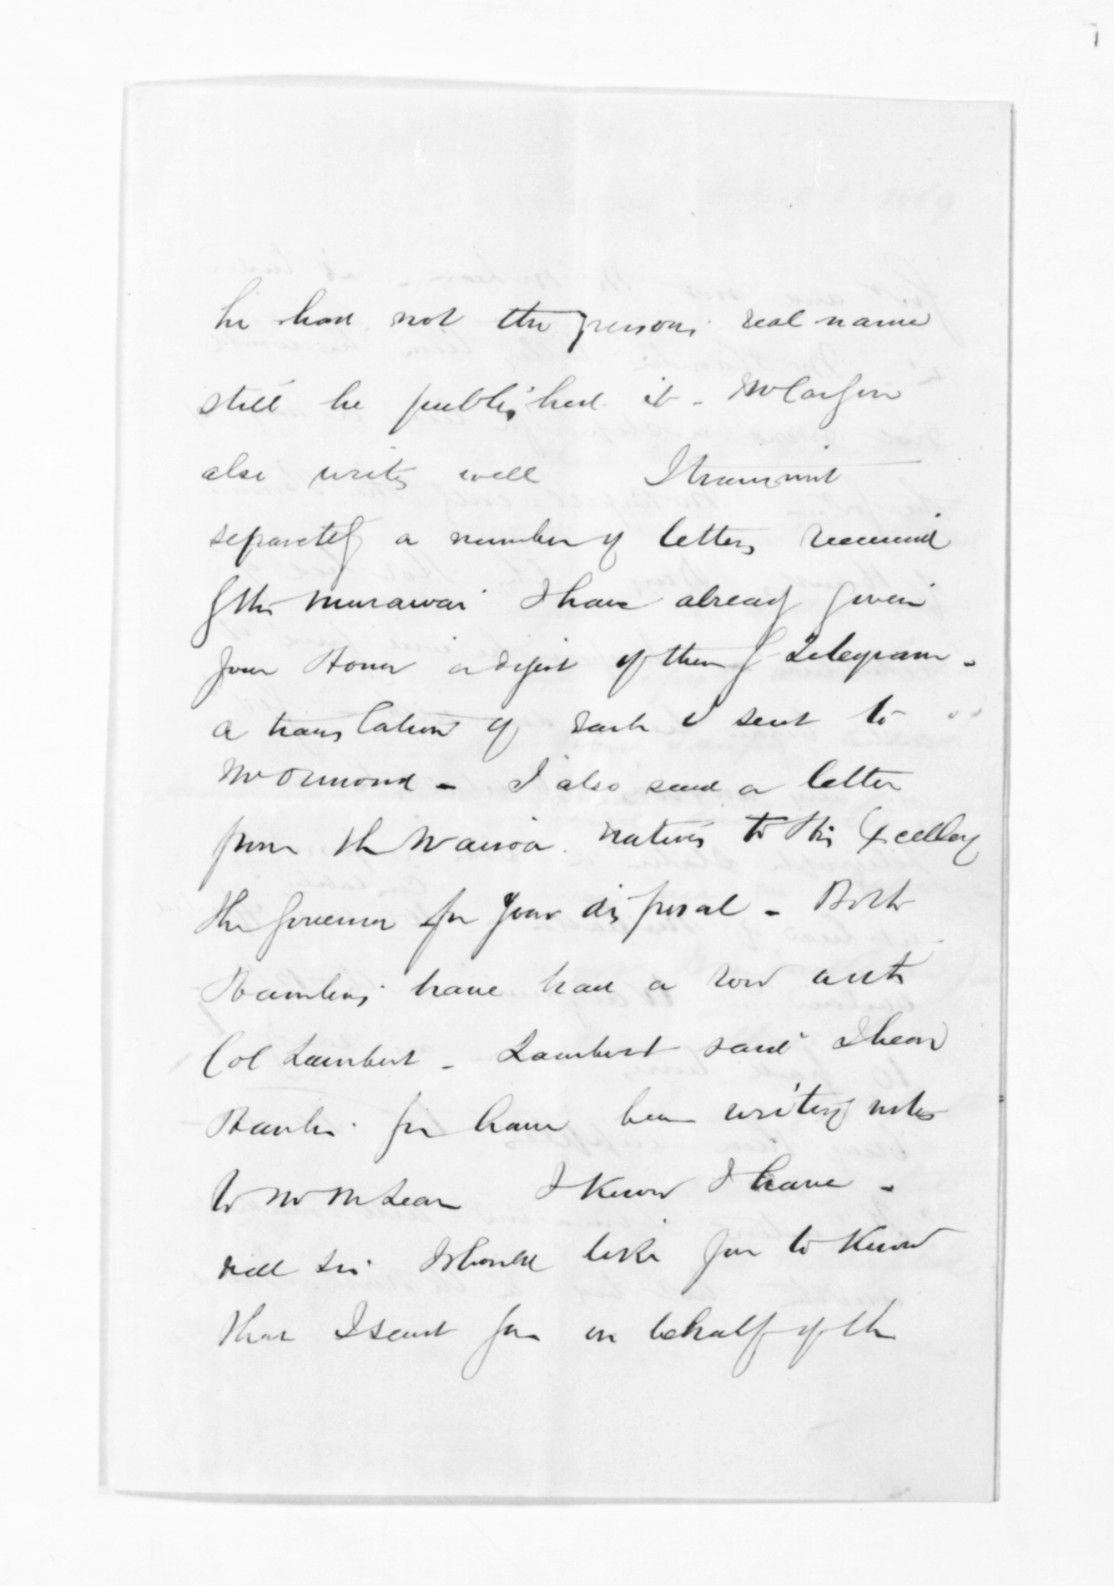 he had not the persons real name
still he published it - McCarfoe
also writes well I transmit
separately a number of letters received
fr the Murawai I have already given
your Honor a digest of them by Telegram -
a translation of each I sent to
Mr Ormond - I also send a letter
from the Wairoa natives to His Excellency
the Governor for your disposal - Both
have had a row with
Col Lambert - Lambert said I hear
you have been writing notes
to Mr McLean I know I have -
well Sir I should like you to know
that I sent you on behalf of the